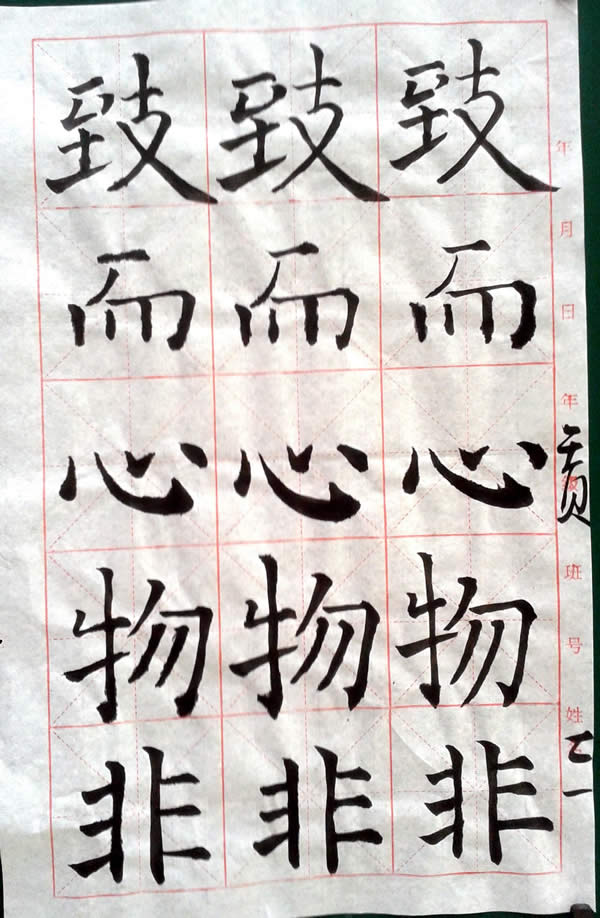 年月日年 班号姓
贡
致而心物非
致而心物非
致而心物非